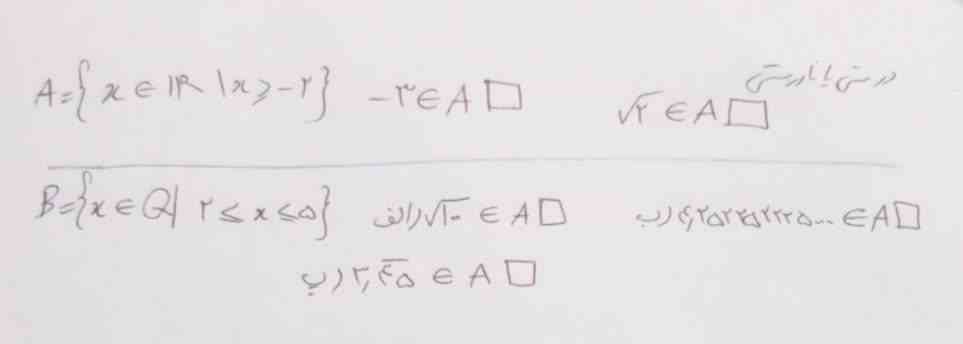 درستی یا نادرستی
A={x∈ℝ | x≥-۲} -۳∈A □ √۲∈A □
B={x∈Q | ۲≤x≤۵} الف) √۱۰ ∈ A □ ب) ۴,۲۵۲۲۵۲۲۲۵... ∈ A □
ب) ۲,۴۵ ∈ A □